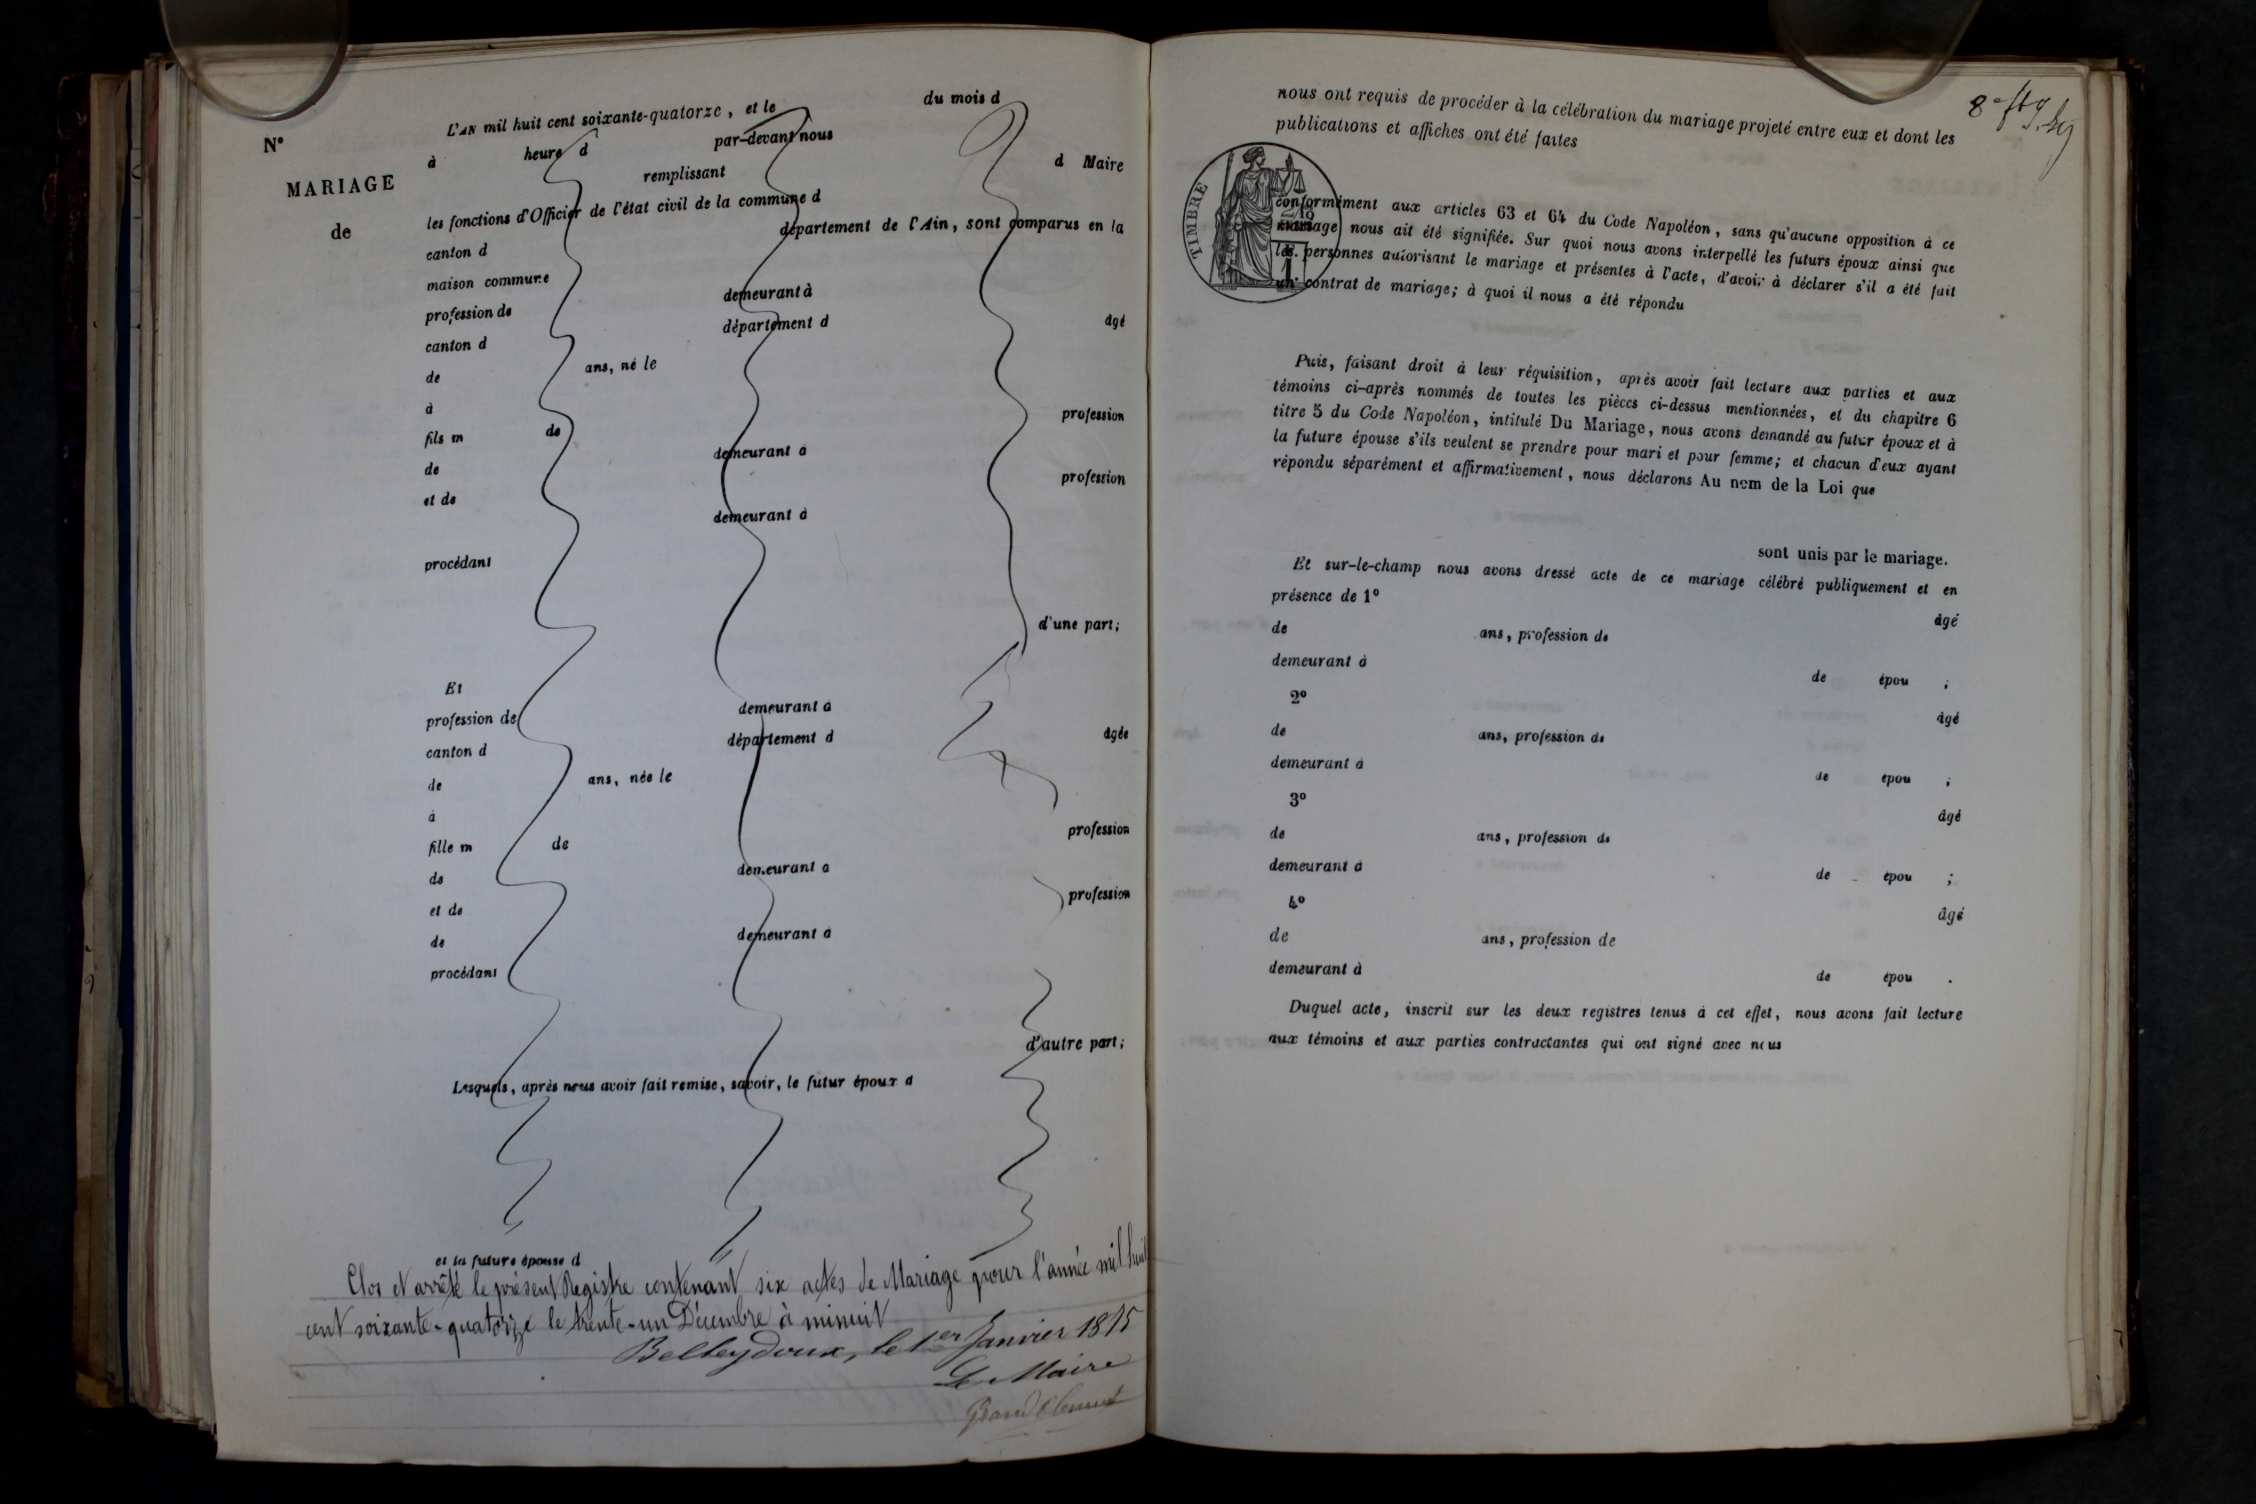 L'AN mil huit cent soixante-quatorze, et le du mois d
N° à heure d par-devant nous
MARIAGE remplissant d Maire
de les fonctions d'Officier de l'état civil de la commune d
canton d département de l'Ain, sont comparus en la
maison commune
profession de demeurant à
canton d département d âgé
de ans, né le
à
fils m de profession
de demeurant à
et de profession
demeurant à
procédant
d'une part;
Et
profession de demeurant à
canton d département d âgée
de ans, née le
à
fille m de profession
de demeurant à
et de profession
de demeurant à
procédant
d'autre part;
Lesquels, après nous avoir fait remise, savoir, le futur époux d
et la future épouse d
Clos et arrêté le présent Registre contenant six actes de Mariage pour l'année mil huit
cent soixante-quatorze le trente-un Décembre à minuit
Belleydoux, le 1er Janvier 1875
Le Maire
Grandclement
8e
nous ont requis de procéder à la célébration du mariage projeté entre eux et dont les
publications et affiches ont été faites
TIMBRE
conformément aux articles 63 et 64 du Code Napoléon, sans qu'aucune opposition à ce
mariage nous ait été signifiée. Sur quoi nous avons interpellé les futurs époux ainsi que
les personnes autorisant le mariage et présentes à l'acte, d'avoir à déclarer s'il a été fait
un contrat de mariage; à quoi il nous a été répondu
Puis, faisant droit à leur réquisition, après avoir fait lecture aux parties et aux
témoins ci-après nommés de toutes les pièces ci-dessus mentionnées, et du chapitre 6
titre 5 du Code Napoléon, intitulé Du Mariage, nous avons demandé au futur époux et à
la future épouse s'ils veulent se prendre pour mari et pour femme; et chacun d'eux ayant
répondu séparément et affirmativement, nous déclarons Au nom de la Loi que
sont unis par le mariage.
Et sur-le-champ nous avons dressé acte de ce mariage célébré publiquement et en
présence de 1° âgé
de ans, profession de
demeurant à de épou ;
2° âgé
de ans, profession de
demeurant à de épou ;
3° âgé
de ans, profession de
demeurant à de épou ;
4° âgé
de ans, profession de
demeurant à de épou .
Duquel acte, inscrit sur les deux registres tenus à cet effet, nous avons fait lecture
aux témoins et aux parties contractantes qui ont signé avec nous